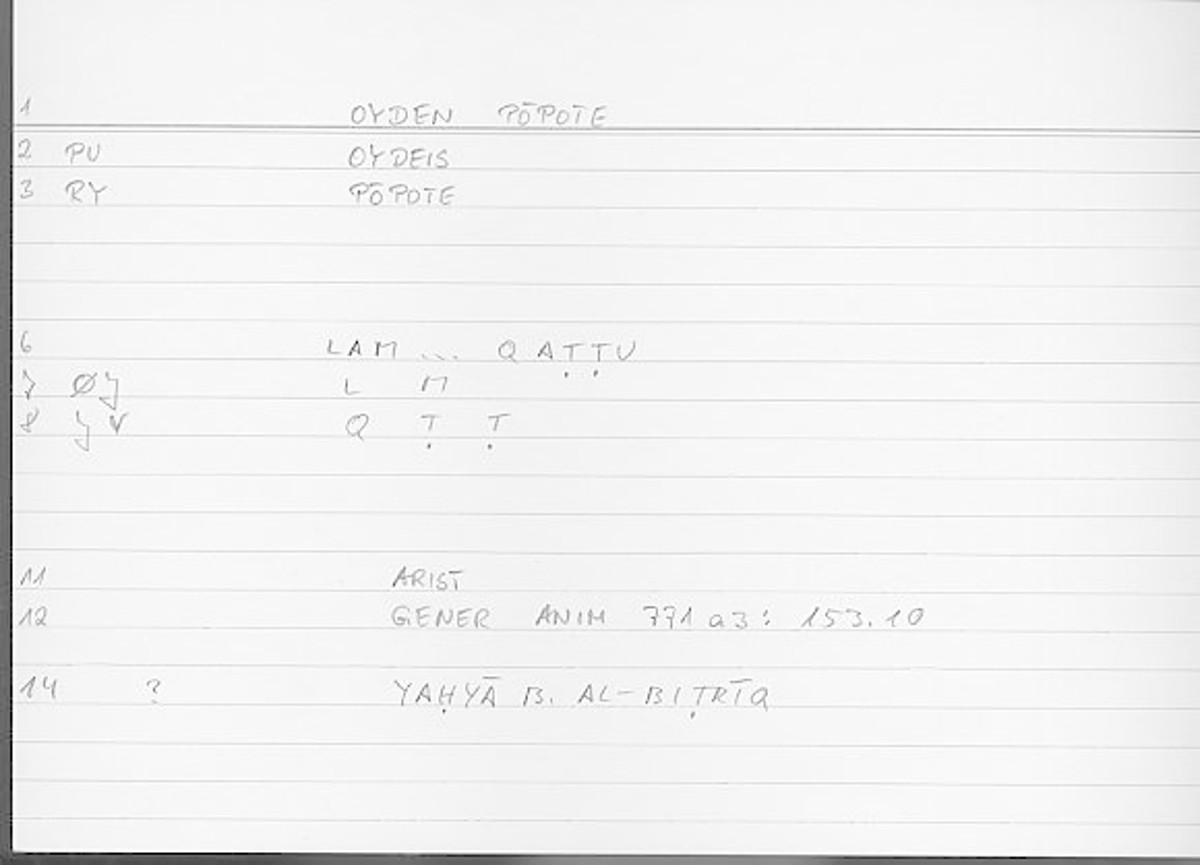 1 OYDEN PŌPOTE
2 PU OYDEIS
3 RY PŌPOTE
6 LAM ... QAṬṬU
7 Øʒ L M
8 ʒv Q Ṭ Ṭ
11 ARIST
12 GENER ANIM 771a3: 153.10
14 ? YAḤYĀ B. AL-BIṬRĪQ